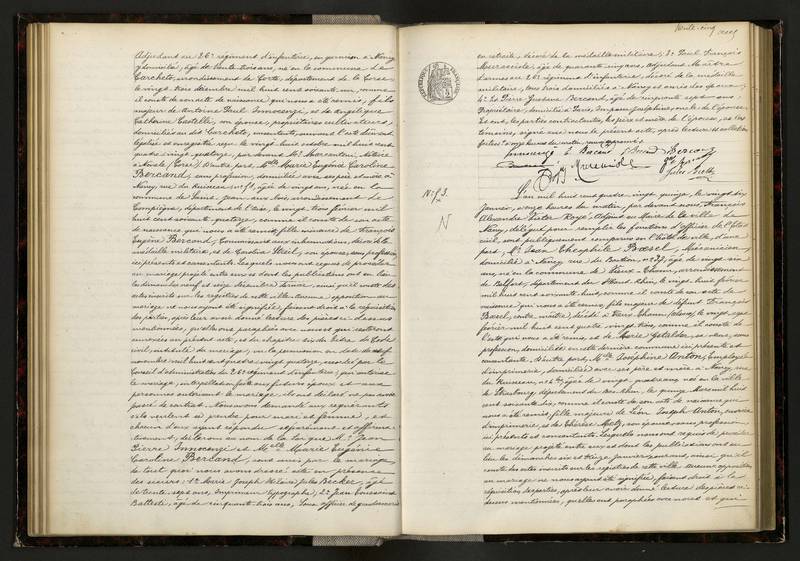 Adjudant au 26e régiment d'infanterie, en garnison à Nancy
y domicilié, âgé de trente trois ans, né en la commune de
Carcheto, arrondissement de Corte, département de la Corse
le vingt trois décembre mil huit cent soixante un, comme
il conste de son acte de naissance qui nous a été remis, fils
majeur de Antoine Paul Innocenzi, et de Angèle
Catherine Castelli, son épouse, propriétaires cultivateurs,
domiciliés au dit Carcheto, consentants, suivant l'acte
et enregistré reçu le vingt huit octobre mil huit cent
quatre vingt quatorze, par devant Me Marcantoni, Notaire
à (Corse). D'autre part, Melle Marie Eugénie Caroline
Bercand, sans profession, domiciliée avec ses père et mère à
Nancy, rue du Ruisseau no âgée de vingt ans, née en la
commune de Saint-Jean aux Bois, arrondissement de
Compiègne, département de l'Oise, le vingt trois février mil
huit cent soixante quatorze, comme il conste de son acte
de naissance que nous a été remis, fille mineure de François
Eugène Bercand, Commissaire aux inhumations, décoré de la
médaille militaire, et de Caroline son épouse, sans profession
ci présents et consentants. Lesquels nous ont requis de procéder
au mariage projeté entre eux et dont les publications ont eu lieu
les dimanches neuf et seize décembre dernier, ainsi qu'il conste des
actes inscrits sur les registres de cette ville. Aucune opposition au
mariage ne nous ayant été signifiée, faisant droit à la réquisition
des parties, après leur avoir donné lecture des pièces ci-dessus
mentionnées, qu'elles ont paraphées avec nous et qui resteront
annexées au présent acte, et du chapitre six du titre du Code
civil, intitulé du mariage, vu la permission en date du
novembre mil huit cent quatre vingt quatorze, accordée par le
Conseil d'administration du 26e régiment d'infanterie, qui autorise
le mariage, interpellation faite aux futurs époux et aux
personnes autorisant le mariage, ils ont déclaré ne pas avoir
passé de contrat. Nous avons demandé aux requérants
s'ils veulent se prendre pour mari et femme, et
chacun d'eux ayant répondu séparément et affirma-
tivement, déclarons au nom de la loi que Mr Jean
Pierre Innocenzi et Melle Marie Eugénie
Caroline Bercand, sont unis par le mariage
de tout quoi nous avons dressé acte en présence
des sieurs: 1e Marie Joseph Hilaire Jules Becker, âgé
de trente sept ans, Imprimeur typographe; 2e Jean Toussaint
Battesti, âgé de cinquante trois ans, Sous officier de gendarmerie
Trente-cinq
en retraite, décoré de la médaille militaire; 3e Paul François
Muracciole, âgé de quarante cinq ans, Adjudant Maître
d'armes au 26e régiment d'infanterie, décoré de la médaille
militaire, tous trois domiciliés à Nancy et amis des époux;
4e Pierre Gustave Bercand, âgé de cinquante sept ans
Propriétaire, domicilié à Paris, oncle de l'épouse.
Et ont, les parties contractantes, les père et mère de l'épouse, et les
témoins, signé avec nous le présent acte, après lecture et collation
faites.
Innocenzi C Bercand Bercand
No 73.
N
L'an mil huit cent quatre vingt quinze, le vingt six
janvier, à onze heures du matin, par devant nous, François
Alexandre Victor Roye, Adjoint au Maire de la ville de
Nancy, délégué pour remplir les fonctions d'officier de l'état
civil, sont publiquement comparus en l'hôtel de ville, d'une
part, Mr Jean Théophile Basel, Mécanicien,
domicilié à Nancy, rue de Boudon, no 27, âgé de vingt six
ans, né en la commune de Vieux-Thann, arrondissement
de Belfort, département du Haut-Rhin, le vingt huit février
mil huit cent soixante huit, comme il conste de son acte de
naissance qui nous a été remis, fils majeur de défunt François
Basel, contre maître, décédé à Vieux-Thann (Alsace), le vingt sept
février mil huit cent quatre vingt trois, comme il conste de
l'acte qui nous a été remis, et de Marie sa veuve, sans
profession, domiciliée en cette dernière commune, ci présente et
consentante. D'autre part, Melle Joséphine Anton, Employée
d'imprimerie, domiciliée avec ses père et mère à Nancy, rue
du Ruisseau, no âgée de vingt quatre ans, née en la ville
de Strasbourg, département du Bas-Rhin, le quinze Mars mil huit
cent soixante dix, comme il conste de son acte de naissance qui
nous a été remis, fille majeure de Léon Joseph Anton, ouvrier
d'imprimerie, et de Thérèse Metz, son épouse, sans profession,
ci présents et consentants. Lesquels nous ont requis de procéder
au mariage projeté entre eux et dont les publications ont eu
lieu les dimanches six et treize janvier courant, ainsi qu'il
conste des actes inscrits sur les registres de cette ville. Aucune opposition
au mariage ne nous ayant été signifiée, faisant droit à la
réquisition des parties, après leur avoir donné lecture des pièces ci-
dessus mentionnées, qu'elles ont paraphées avec nous et qui